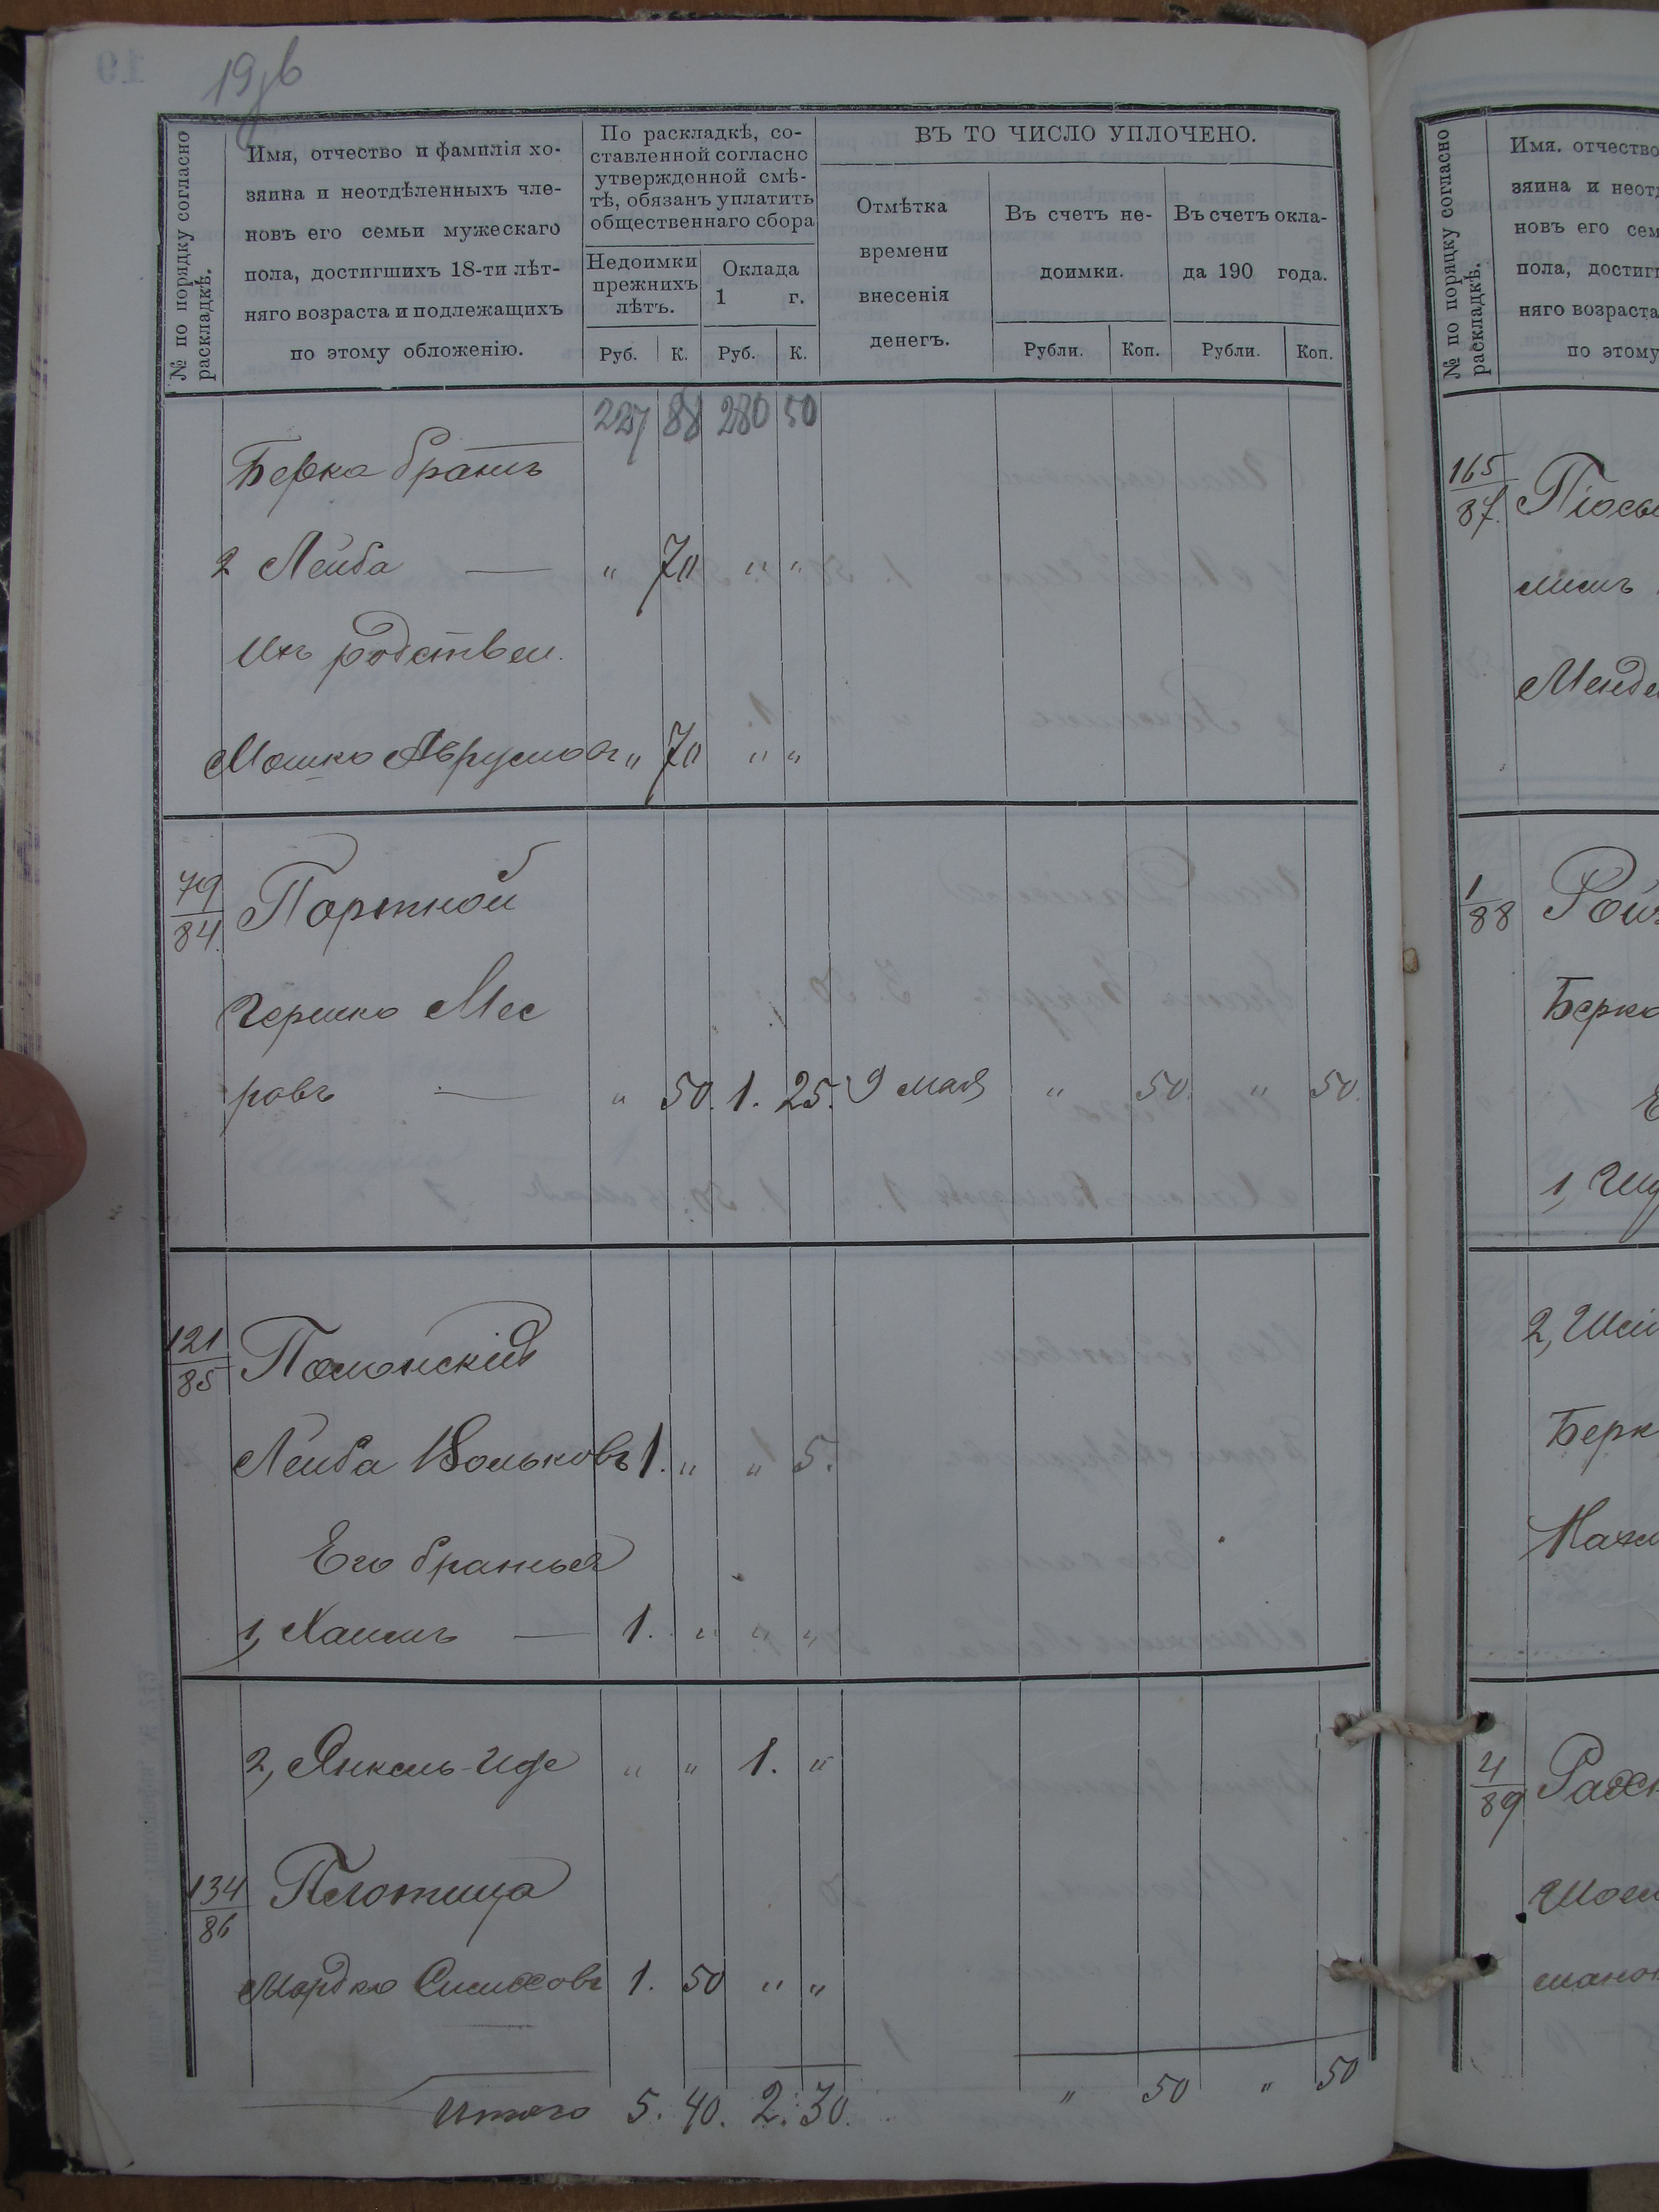 19
№ по порядку согласно раскладкѣ.
Имя, отчество и фамилія хозяина и неотдѣленныхъ членовъ его семьи мужескаго пола, достигшихъ 18-ти лѣтняго возраста и подлежащихъ по этому обложенію.
По раскладкѣ, составленной согласно утвержденной смѣтѣ, обязанъ уплатить общественнаго сбора
Недоимки прежнихъ лѣтъ.
Оклада 1 г.
Руб. К. Руб. К.
ВЪ ТО ЧИСЛО УПЛОЧЕНО.
Отмѣтка времени внесенія денегъ.
Въ счетъ недоимки.
Въ счетъ оклада 190 года.
Рубли. Коп. Рубли. Коп.
227 88 280 50
Берка братъ
2 Лейба — " 70 " "
Ихъ родствен.
Мошко Аврумовъ " 70 " "
79/84. Портной
Гершко Мее
ровъ — " 50. 1. 25. 9 мая " 50. " 50.
121/85 Полонскій
Лейба Вольковъ 1. " " 5.
Его братья
1, Хаимъ — 1. " " "
2, Янкель-Иде " " 1. "
134/86 Плотица
Мордко 1. 50 " "
Итого 5. 40. 2. 30. " 50 " 50
№ по порядку согласно раскладкѣ.
Имя. отчество
зяина и неотд
новъ его сем
пола, достиг
няго возраста
по этому
165/87.
1/88
Берко
2,
Берк
4/89